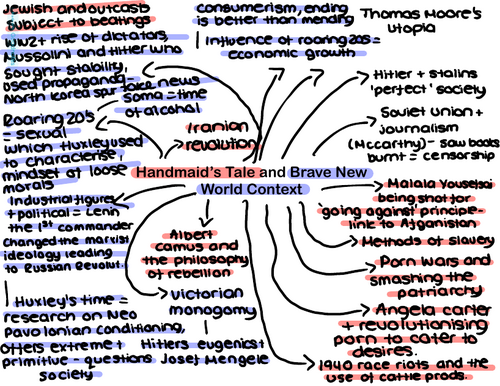 Jewish and outcasts
subject to beatings
WW2+ rise of dictators,
Mussolini and Hitler who
sought stability,
used propaganda-
North Korea spur fake news
Soma = time
of alcohol
consumerism, ending
is better than mending
Influence of roaring 20s =
economic growth
Thomas Moore's
utopia
Hitler + Stalins
'perfect' society
Soviet Union +
journalism
(McCarthy) - saw books
burnt = censorship
Roaring 20's
= sexual
which Huxley used
to characterise,
mindset at loose
morals
Iranian
revolution
Handmaid's Tale and Brave New
World Context
Industrial figures
+ political = Lenin
the 1st commander
changed the marxist
ideology leading
to Russian Revolut.
Huxley's time =
research on Neo
Pavolonian conditioning,
offers extreme +
primitive - questions
society
Albert
camus and
the philosophy
of rebellion
victorian
monogamy
Hitlers eugenicist
Josef Mengele
Malala Yousefsai
being shot for
'going against principle-
link to Afganistan
Methods of slavery
Porn wars and
smashing the
patriarchy
Angela Carter
+ revolutionising
porn to cater to
desires.
1940 race riots and the
use of cattle prods.